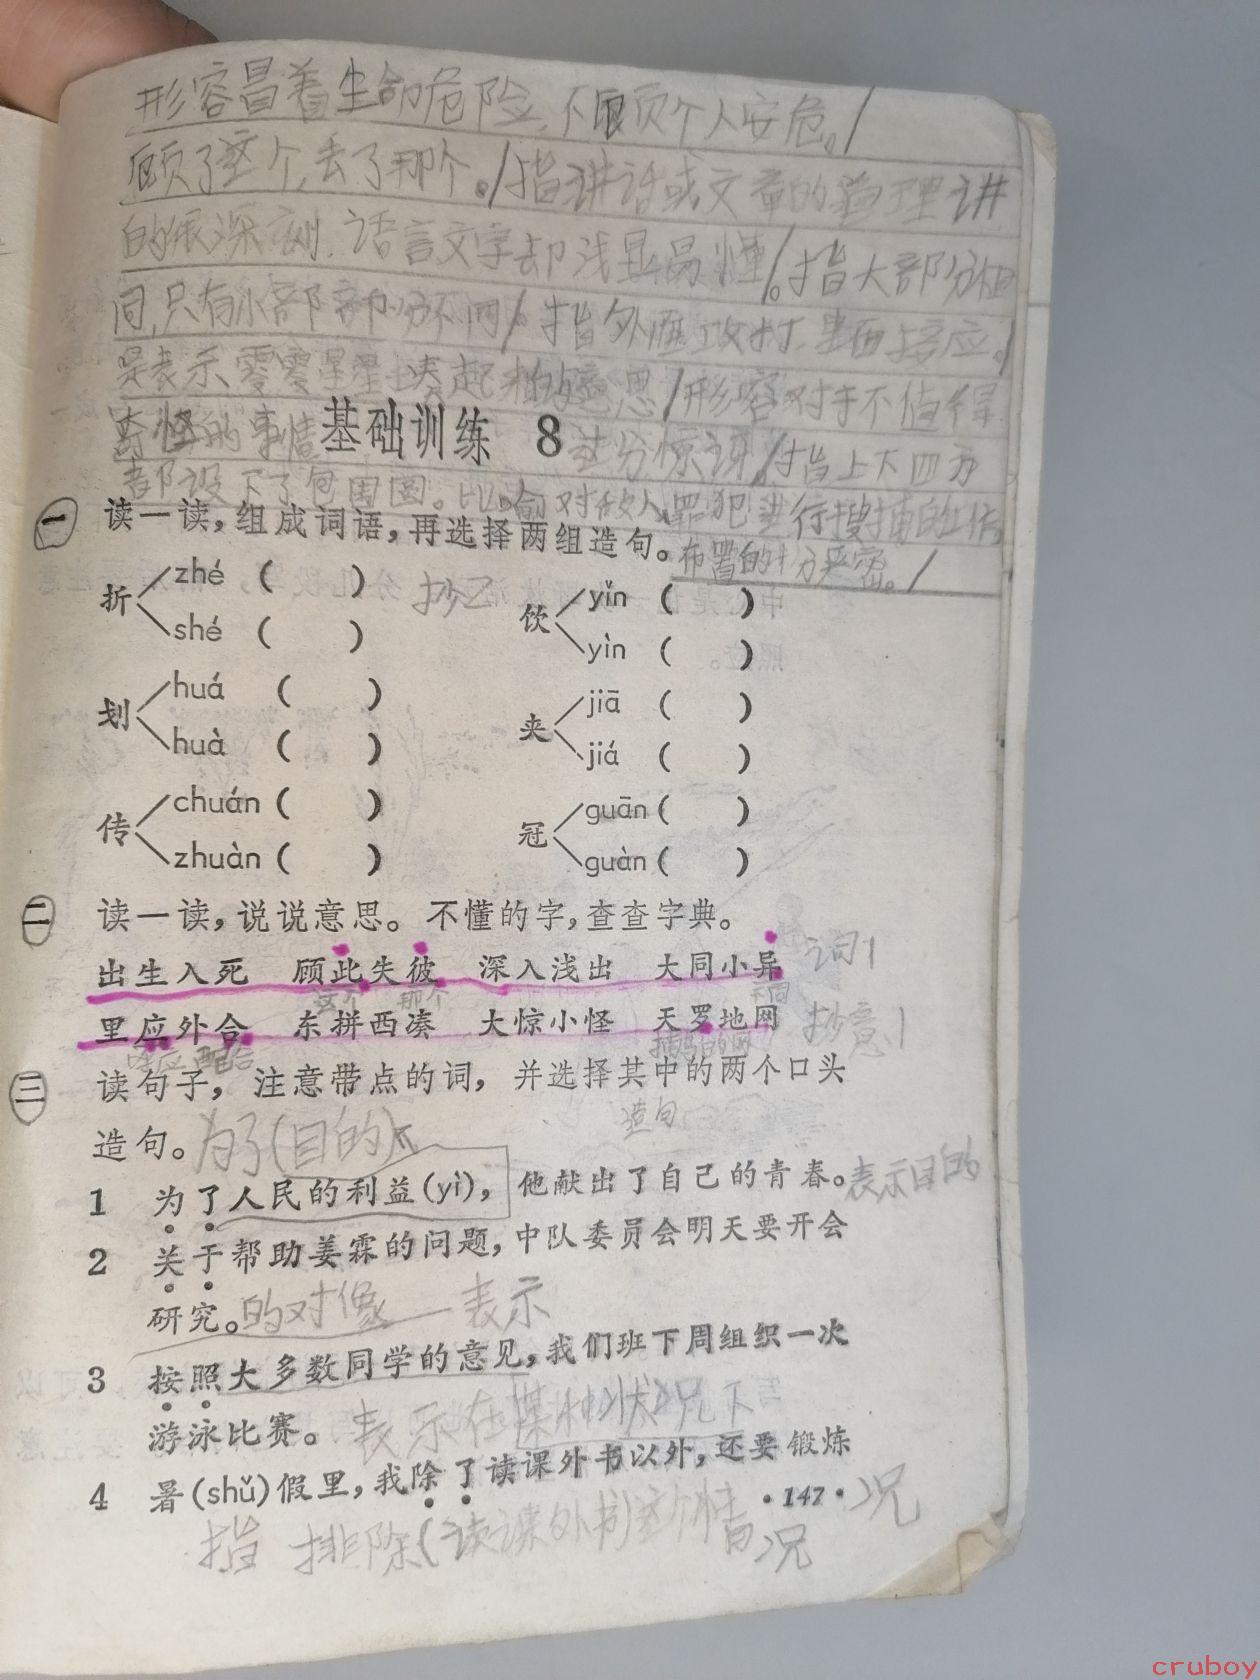 形容冒着生命危险,不顾个人安危。/
顾了这个,去了那个。/指讲话或文章的道理讲
的很深刻,话言文字却浅显易懂/。指大部分相
同,只有小部部分不同/。指外面攻打,里面接应。/
是表示零零星星凑起来的意思/形容对于不值得
奇怪的事情 过分惊讶/。指上下四方
都设下了包围圈。比喻对敌人、罪犯进行搜捕的工作,
布置的十分严密。/
基础训练 8
一 读一读,组成词语,再选择两组造句。
抄2
折 zhé ( ) 饮 yǐn ( )
shé ( ) yìn ( )
划 huá ( ) 夹 jiā ( )
huà ( ) jiá ( )
传 chuán ( ) 冠 guān ( )
zhuàn ( ) guàn ( )
二 读一读,说说意思。不懂的字,查查字典。
出生入死 顾此失彼 深入浅出 大同小异 词1
这个 那个 不同
里应外合 东拼西凑 大惊小怪 天罗地网 抄意1
呼应 配合 捕鸟的网
三 读句子,注意带点的词,并选择其中的两个口头
造句
造句。为了(目的)
1 为了人民的利益(yì),他献出了自己的青春。表示目的
2 关于帮助姜霖的问题,中队委员会明天要开会
研究。的对像 表示
3 按照大多数同学的意见,我们班下周组织一次
游泳比赛。表示在某种状况下
4 暑(shǔ)假里,我除了读课外书以外,还要锻炼
·147·
指 排除(读课外书)这个情况
况
cruboy